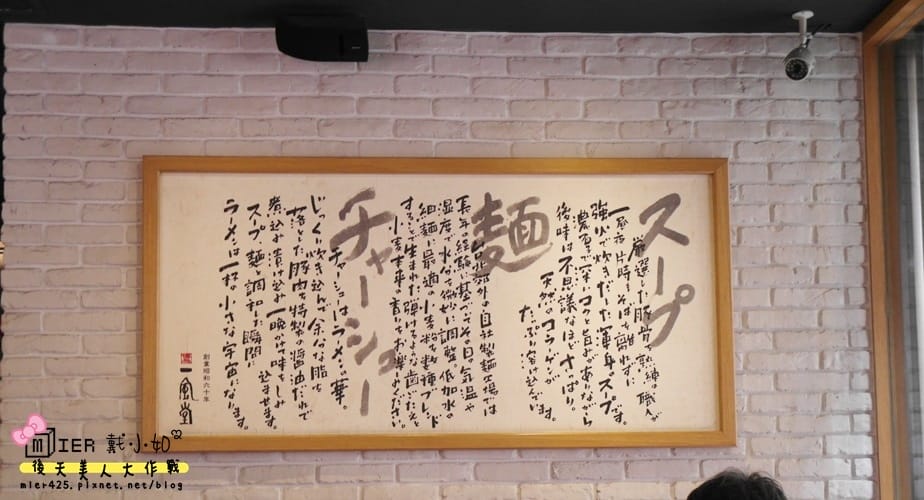 スープ
厳選した豚骨を熟練の職人が
一昼夜片時もそばを離れずに
強火で炊きだした渾身のスープです。
濃厚で深いコクと旨みがありながら
後味は不思議なほどさっぱり。
天然のコラーゲンが
たっぷり溶け込んでいます。
麺
台北郊外の自社製麺工場では
長年の経験に基づきその日の気温や
湿度で水分を微妙に調整。低加水の
細麺に最適の小麦粉を数種ブレンド
することで生まれた弾けるような歯ごたえと
小麦本来の香りをお楽しみください。
チャーシュー
チャーシューはラーメンの華。
じっくり炊き込んで余分な脂を
落とした豚肉を特製の醤油だれで
煮込み漬け込み一晩かけ味をしみ込ませます。
スープ、麺と調和した瞬間に
ラーメンは一杯の小さな宇宙になります。
創業昭和六十年
一風堂
MIER 戴小如
後天美人大作戰
mier425.pixnet.net/blog